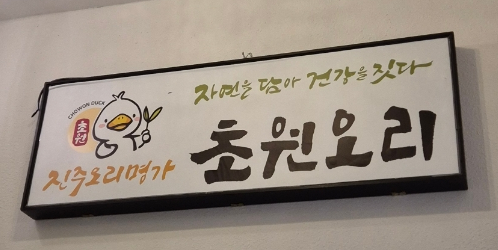 CHOWON DUCK
초원
진주오리명가
자연을 담아 건강을 짓다
초원오리